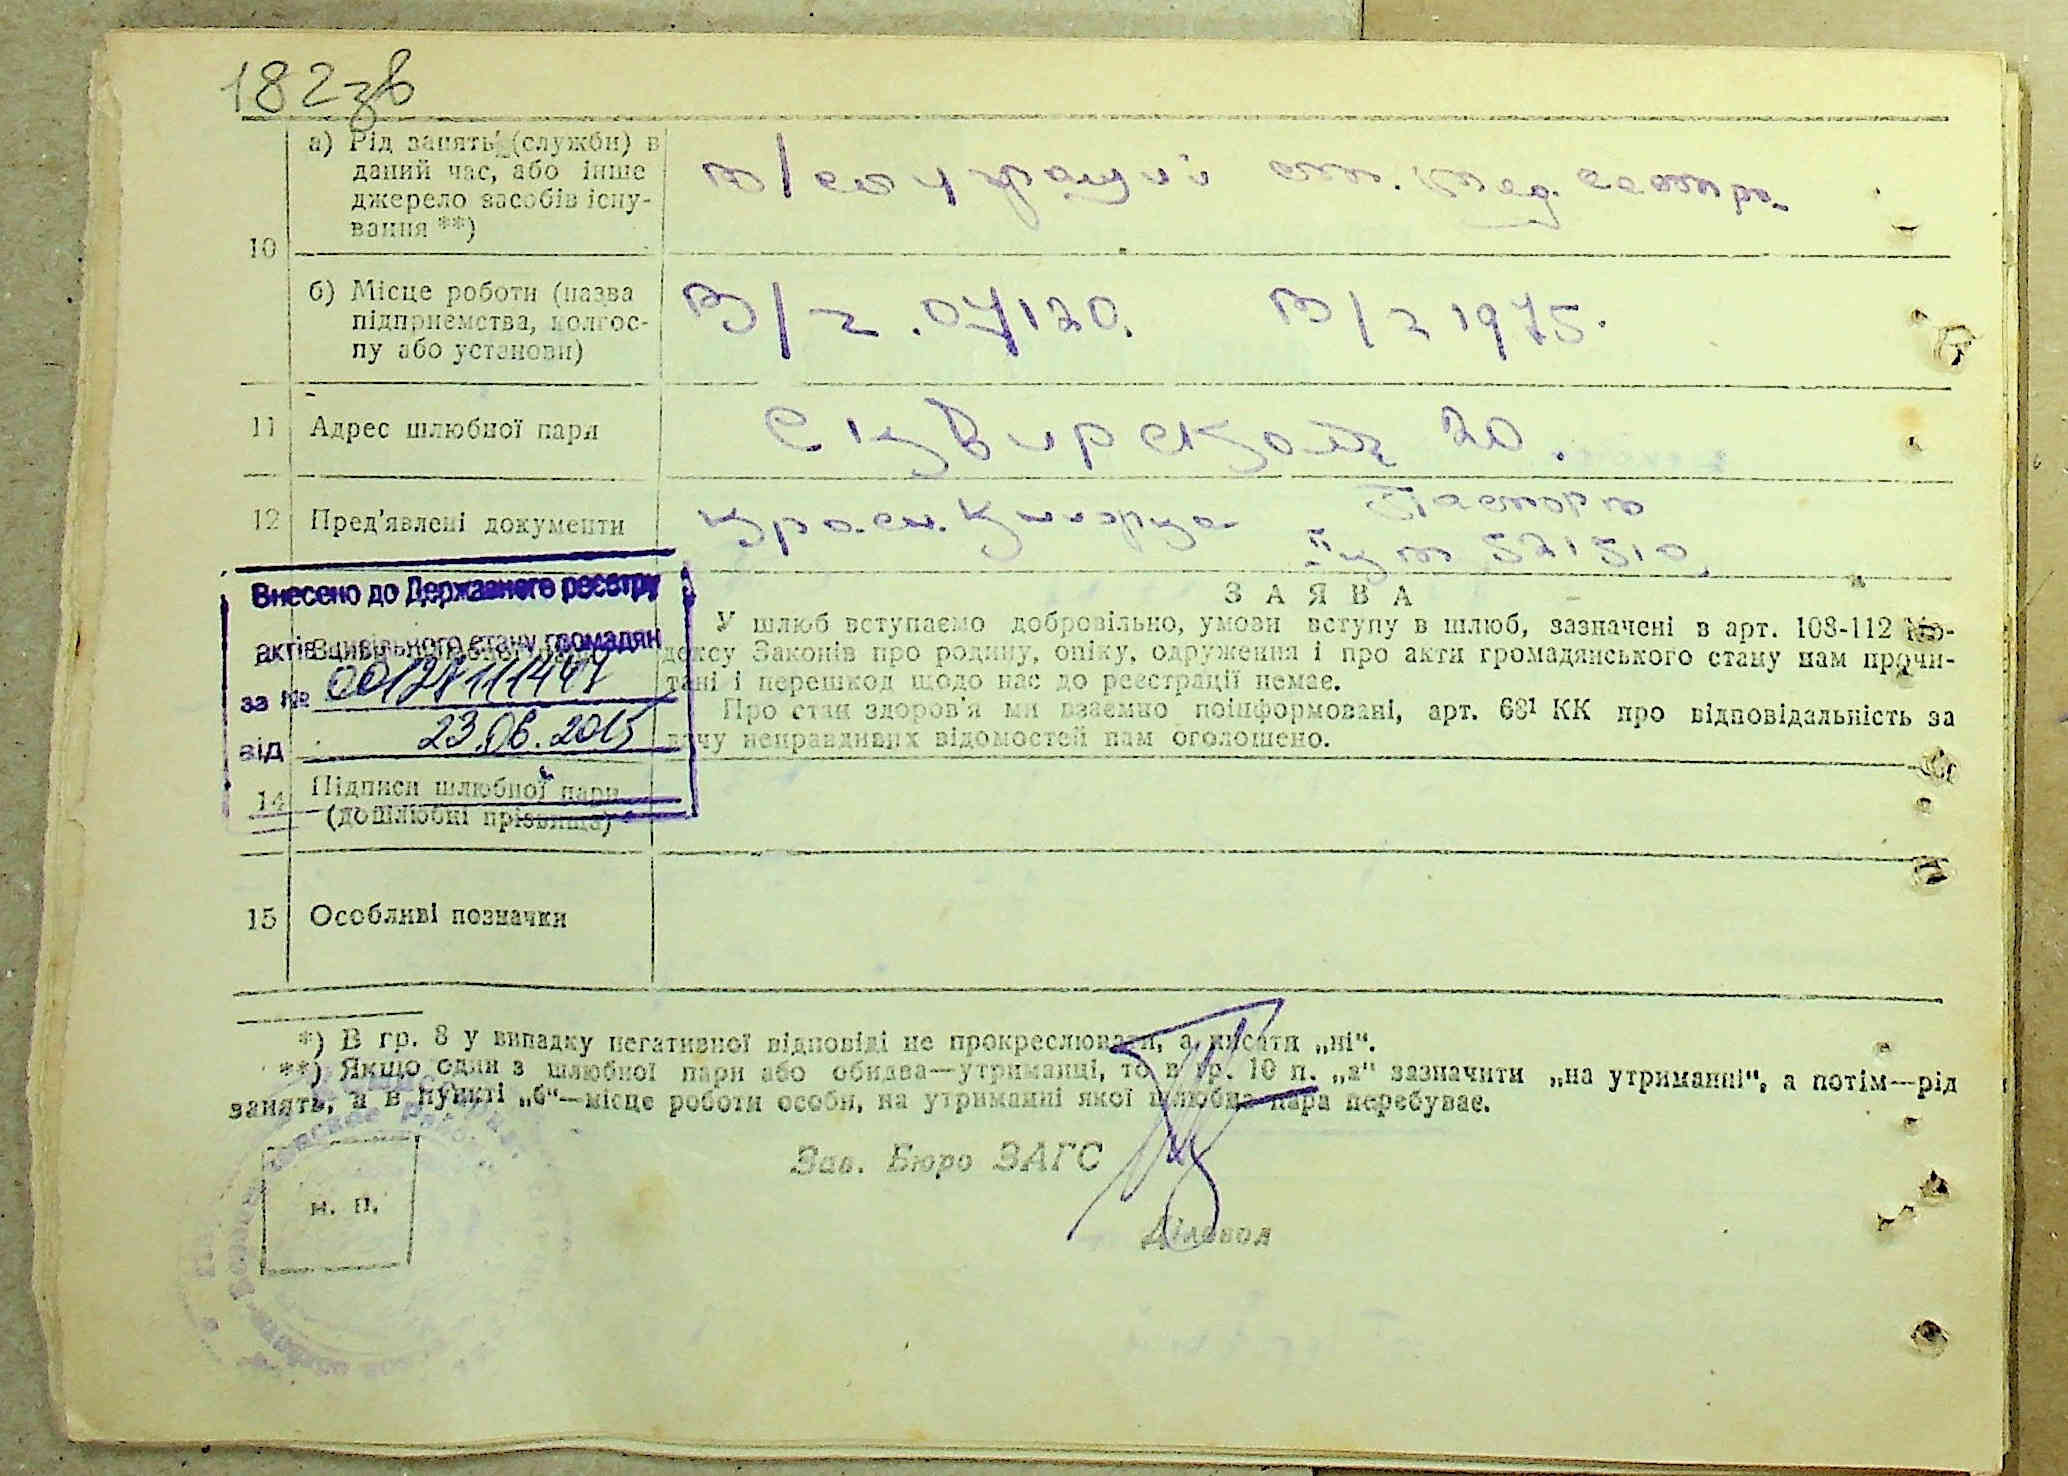 182зв
а) Рід занять (служби) в
даний час, або інше
джерело засобів існу-
вання **)
ст. мед. сестра
10
б) Місце роботи (назва
підприємства, колгос-
пу або установи)
В/ч 04/120. В/ч 1975.
11 Адрес шлюбної пари
Сквирское 20.
12 Пред'явлені документи
красн. книжка Паспорт
521510
Внесено до Державного реєстру
актів цивільного стану громадян
за № 00127111449
від 23.06.2015
З А Я В А
У шлюб вступаємо добровільно, умови вступу в шлюб, зазначені в арт. 108-112 Ко-
дексу Законів про родину, опіку, одруження і про акти громадянського стану нам прочи-
тані і перешкод щодо нас до реєстрації немає.
Про стан здоров'я ми взаємно поінформовані, арт. 68¹ КК про відповідальність за
дачу неправдивих відомостей нам оголошено.
14 Підписи шлюбної пари
(дошлюбні прізвища)
15 Особливі позначки
*) В гр. 8 у випадку негативної відповіді не прокреслювати, а писати „ні“.
**) Якщо один з шлюбної пари або обидва—утриманці, то в гр. 10 п. „а“ зазначити „на утриманні“, а потім—рід
занять, а в пункті „б“—місце роботи особи, на утриманні якої шлюбна пара перебуває.
Зав. Бюро ЗАГС
м. п.
Діловод